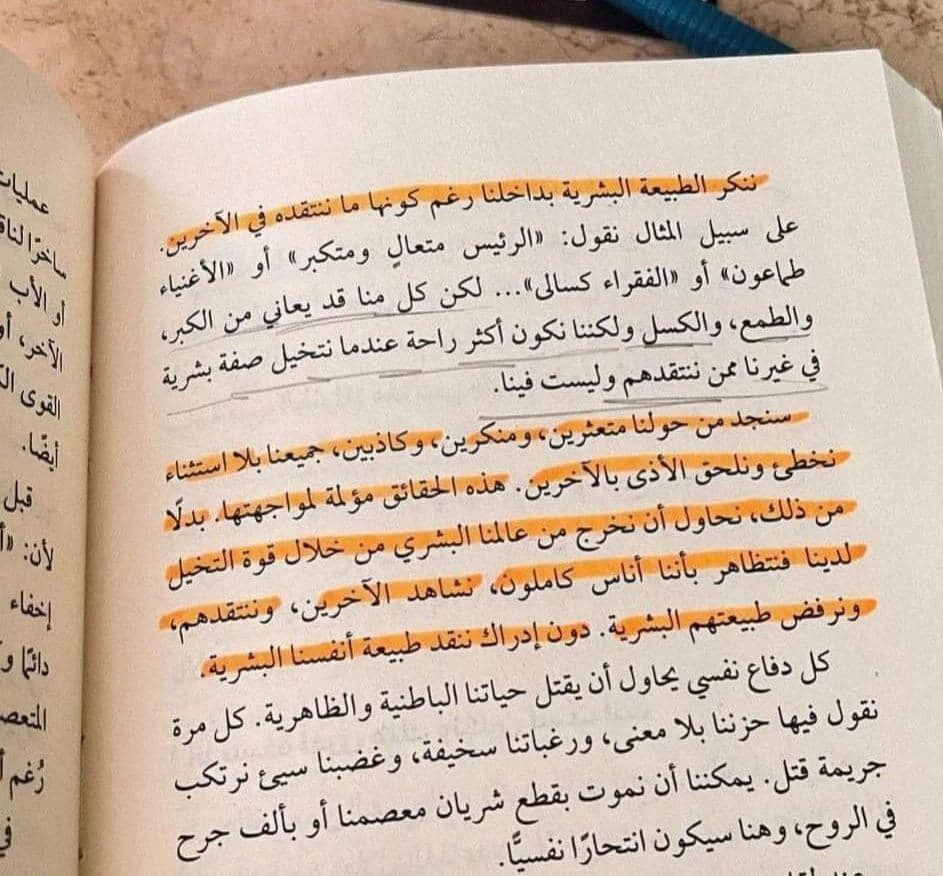 ننكر الطبيعة البشرية بداخلنا رغم كونها ما ننتقده في الآخرين.
على سبيل المثال نقول: «الرئيس متعالٍ ومتكبر» أو «الأغنياء
طماعون» أو «الفقراء كسالى»... لكن كل منا قد يعاني من الكبر،
والطمع، والكسل ولكننا نكون أكثر راحة عندما نتخيل صفة بشرية
في غيرنا ممن ننتقدهم وليست فينا.
سنجد من حولنا متعثرين، ومنكرين، وكاذبين، جميعنا بلا استثناء
نخطئ ونلحق الأذى بالآخرين. هذه الحقائق مؤلمة لمواجهتها. بدلًا
من ذلك، نحاول أن نخرج من عالمنا البشري من خلال قوة التخيل
لدينا فنتظاهر بأننا أناس كاملون، نشاهد الآخرين، وننتقدهم،
ونرفض طبيعتهم البشرية. دون إدراك ننقد طبيعة أنفسنا البشرية.
كل دفاع نفسي يحاول أن يقتل حياتنا الباطنية والظاهرية. كل مرة
نقول فيها حزننا بلا معنى، ورغباتنا سخيفة، وغضبنا سيئ نرتكب
جريمة قتل. يمكننا أن نموت بقطع شريان معصمنا أو بألف جرح
في الروح، وهنا سيكون انتحارًا نفسيًّا.
عمليات
ساخرًا لناق
أو الأب
الآخر، أو
القوى
أيضًا.
قبل
لأن:
إخفاء
دائمًا
رُغم
في